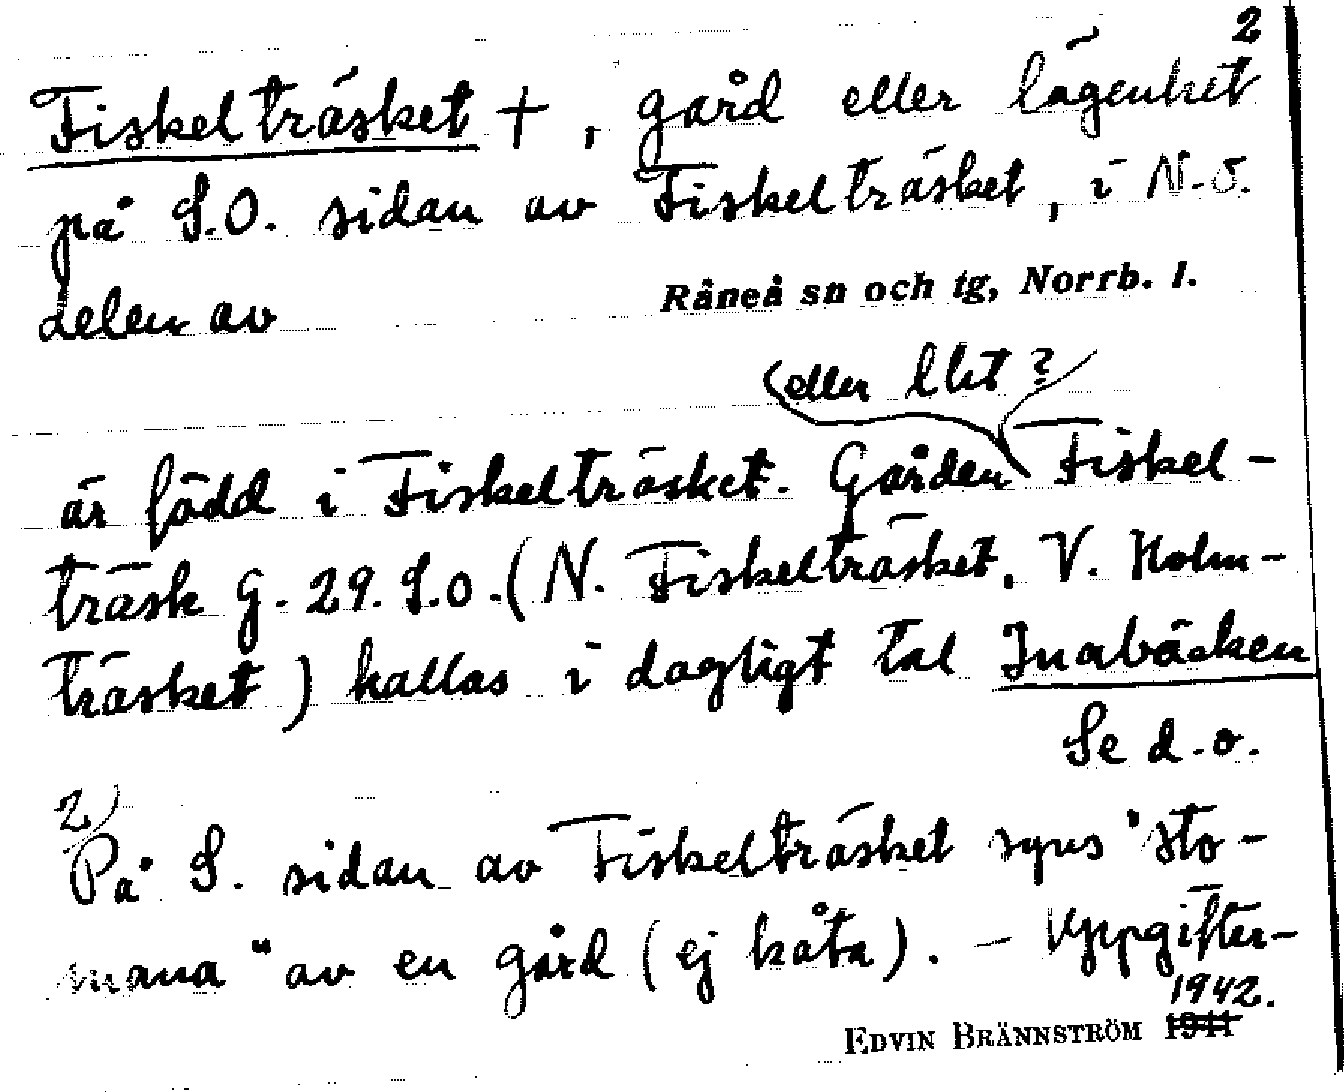 2
Fiskelträsket +, gård eller lägenhet
på S.O. sidan av Fiskelträsket, i N.ö.
delen av Råneå sn och tg, Norrb. l.
(eller lht?)
är född i Fiskelträsket. Gården Fiskel-
träsk g. 29. S.o. (N. Fiskelträsket, V. Holm-
träsket) kallas i dagligt tal Inabäcken
Se d.o.
2)
På S. sidan av Fiskelträsket syns "sto-
mana" av en gård (ej kåta). – Uppgifter-
1942.
EDVIN BRÄNNSTRÖM 1941